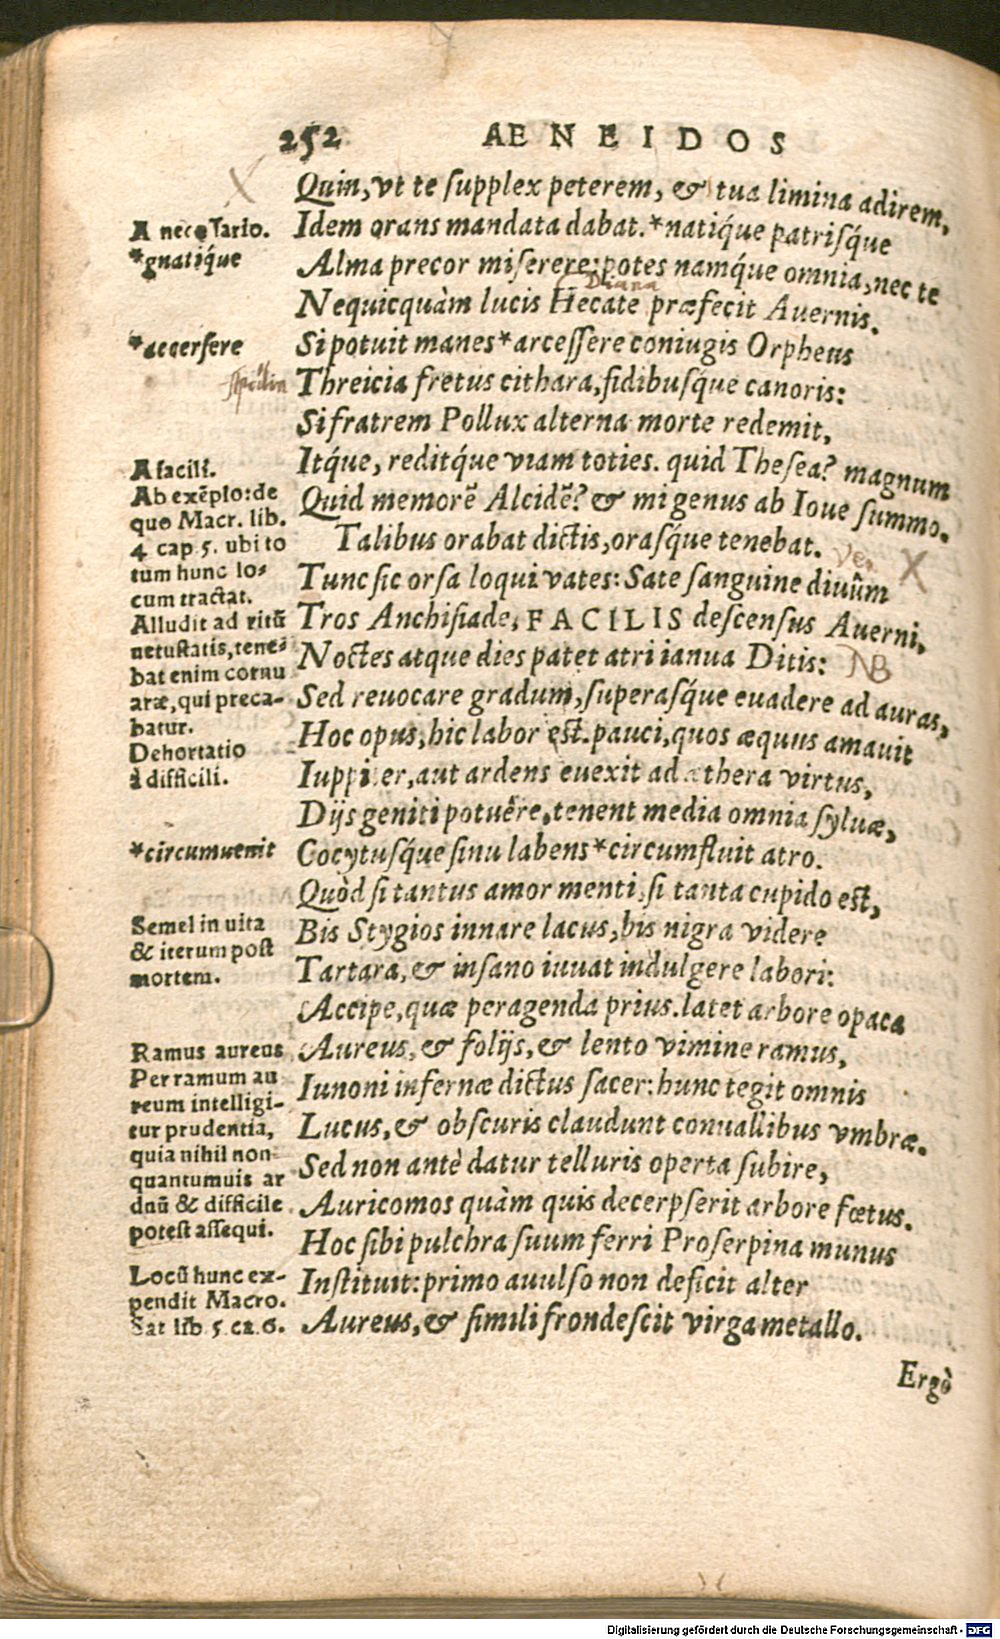 252 AENEIDOS
Quin, vt te supplex peterem, & tua limina adirem,
Idem orans mandata dabat. *natiq́ue patrisq́ue
Alma precor miserere: potes namq́ue omnia, nec te
Nequicquàm lucis Hecate præfecit Auernis.
Si potuit manes *arcessere coniugis Orpheus
Threicia fretus cithara, fidibusq́ue canoris:
Si fratrem Pollux alterna morte redemit,
Itq́ue, reditq́ue viam toties. quid Thesea? magnum
Quid memorē Alcidē? & mi genus ab Ioue summo.
Talibus orabat dictis, orasq́ue tenebat.
Tunc sic orsa loqui vates: Sate sanguine diuûm
Tros Anchisiade, FACILIS descensus Auerni,
Noctes atque dies patet atri ianua Ditis:
Sed reuocare gradum, superasq́ue euadere ad auras,
Hoc opus, hic labor est. pauci, quos æquus amauit
Iuppiter, aut ardens euexit ad æthera virtus,
Dijs geniti potuêre, tenent media omnia syluæ,
Cocytusq́ue sinu labens *circumfluit atro.
Quòd si tantus amor menti, si tanta cupido est,
Bis Stygios innare lacus, bis nigra videre
Tartara, & insano iuuat indulgere labori:
Accipe, quæ peragenda prius. latet arbore opaca
Aureus, & folijs, & lento vimine ramus,
Iunoni infernæ dictus sacer: hunc tegit omnis
Lucus, & obscuris claudunt conuallibus vmbræ.
Sed non antè datur telluris operta subire,
Auricomos quàm quis decerpserit arbore fœtus.
Hoc sibi pulchra suum ferri Proserpina munus
Instituit: primo auulso non deficit alter
Aureus, & simili frondescit virga metallo.
Ergò
A necessario.
*gnatiq́ue
*accersere
A facili.
Ab exēplo: de
quo Macr. lib.
4 cap 5. ubi to
tum hunc lo-
cum tractat.
Alludit ad ritū
uetustatis, tene-
bat enim cornu
aræ, qui preca-
batur.
Dehortatio
à difficili.
*circumuenit
Semel in uita
& iterum post
mortem.
Ramus aureus
Per ramum au
reum intelligi-
tur prudentia,
quia nihil non
quantumuis ar
duū & difficile
potest assequi.
Locū hunc ex-
pendit Macro.
Sat lib 5. ca 6.
X
Diana
X
NB
Digitalisierung gefördert durch die Deutsche Forschungsgemeinschaft - DFG